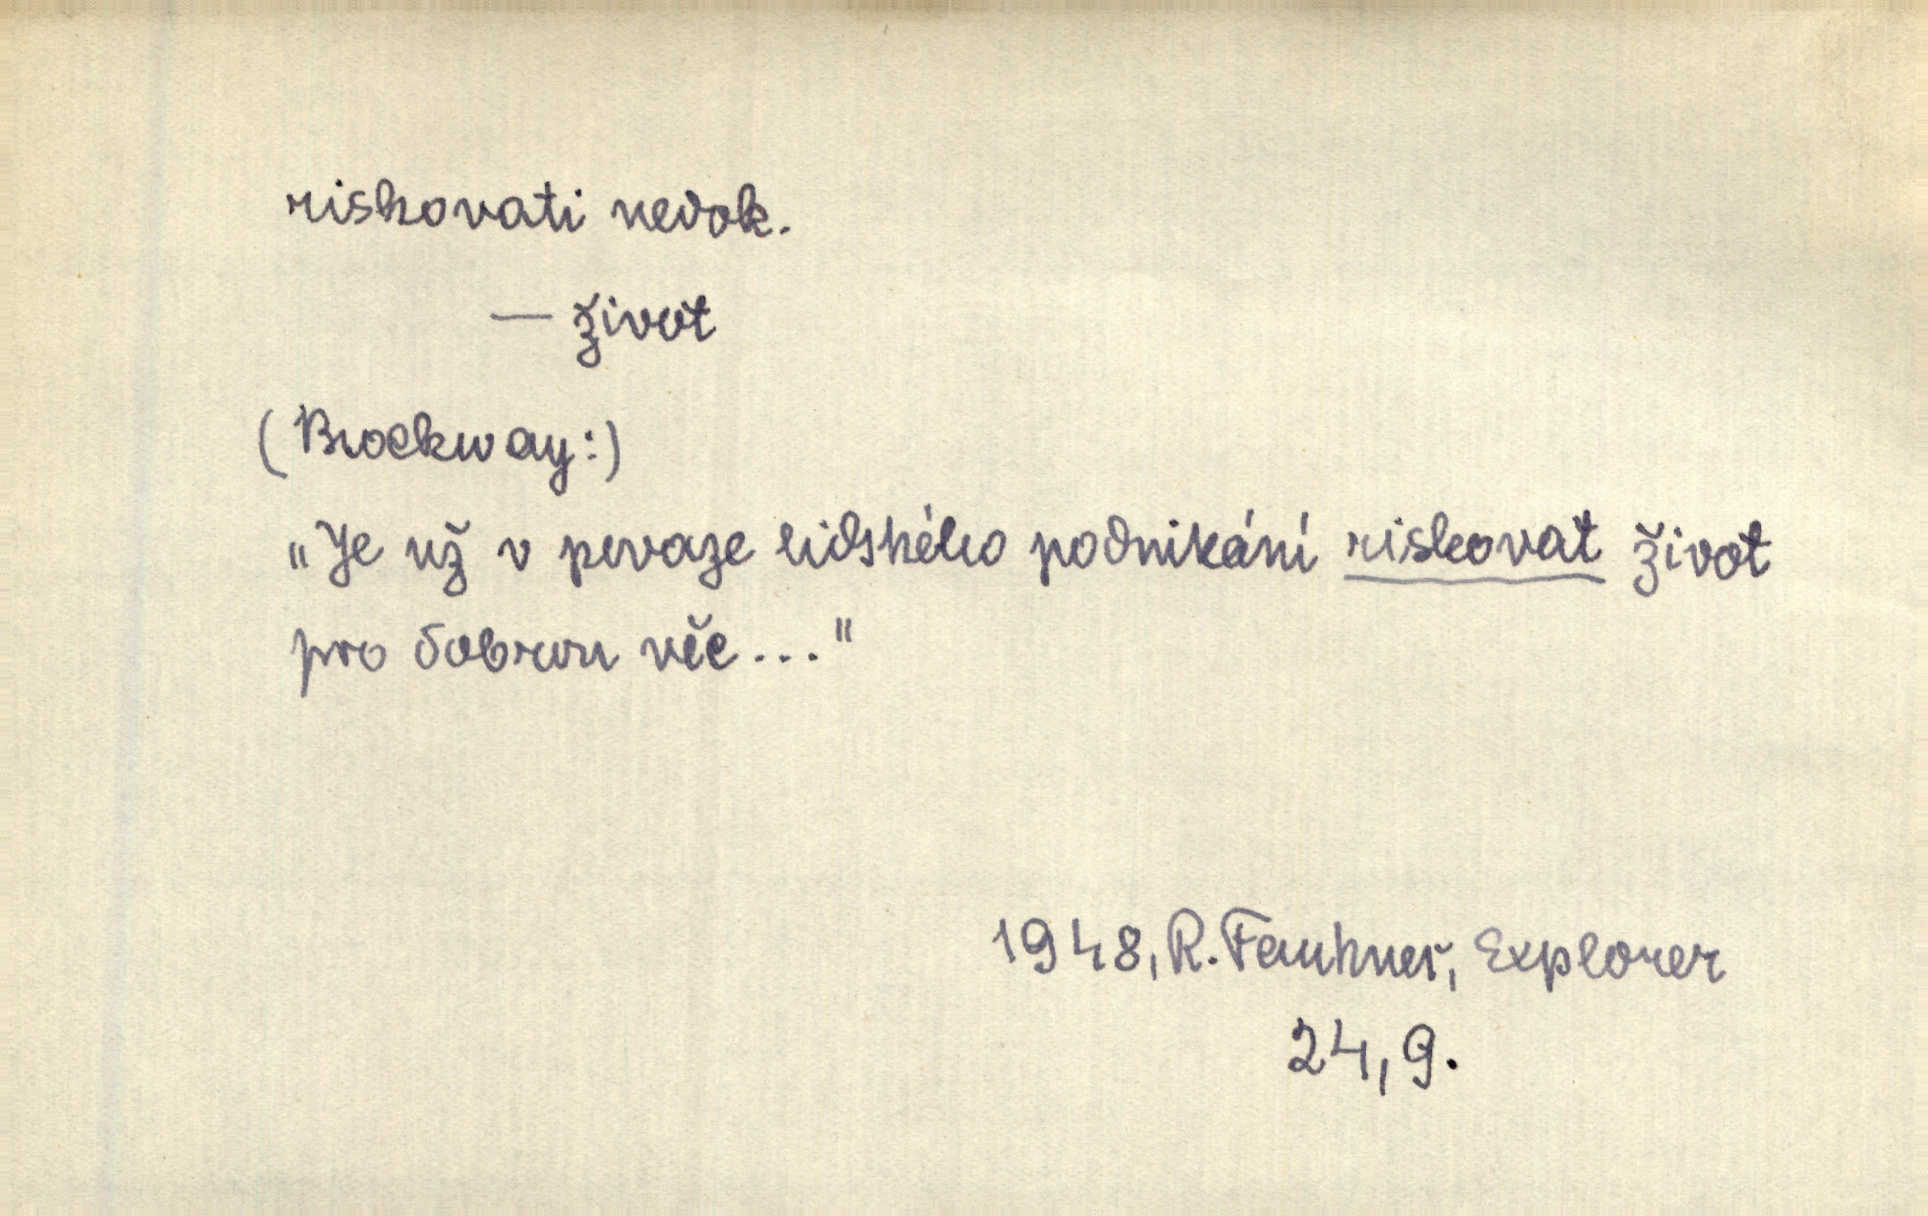 riskovati nedok.
— život
(Brockway:)
„Je už v povaze lidského podnikání riskovat život
pro dobrou věc..."
1948, R. Faukner, Explorer
24, 9.